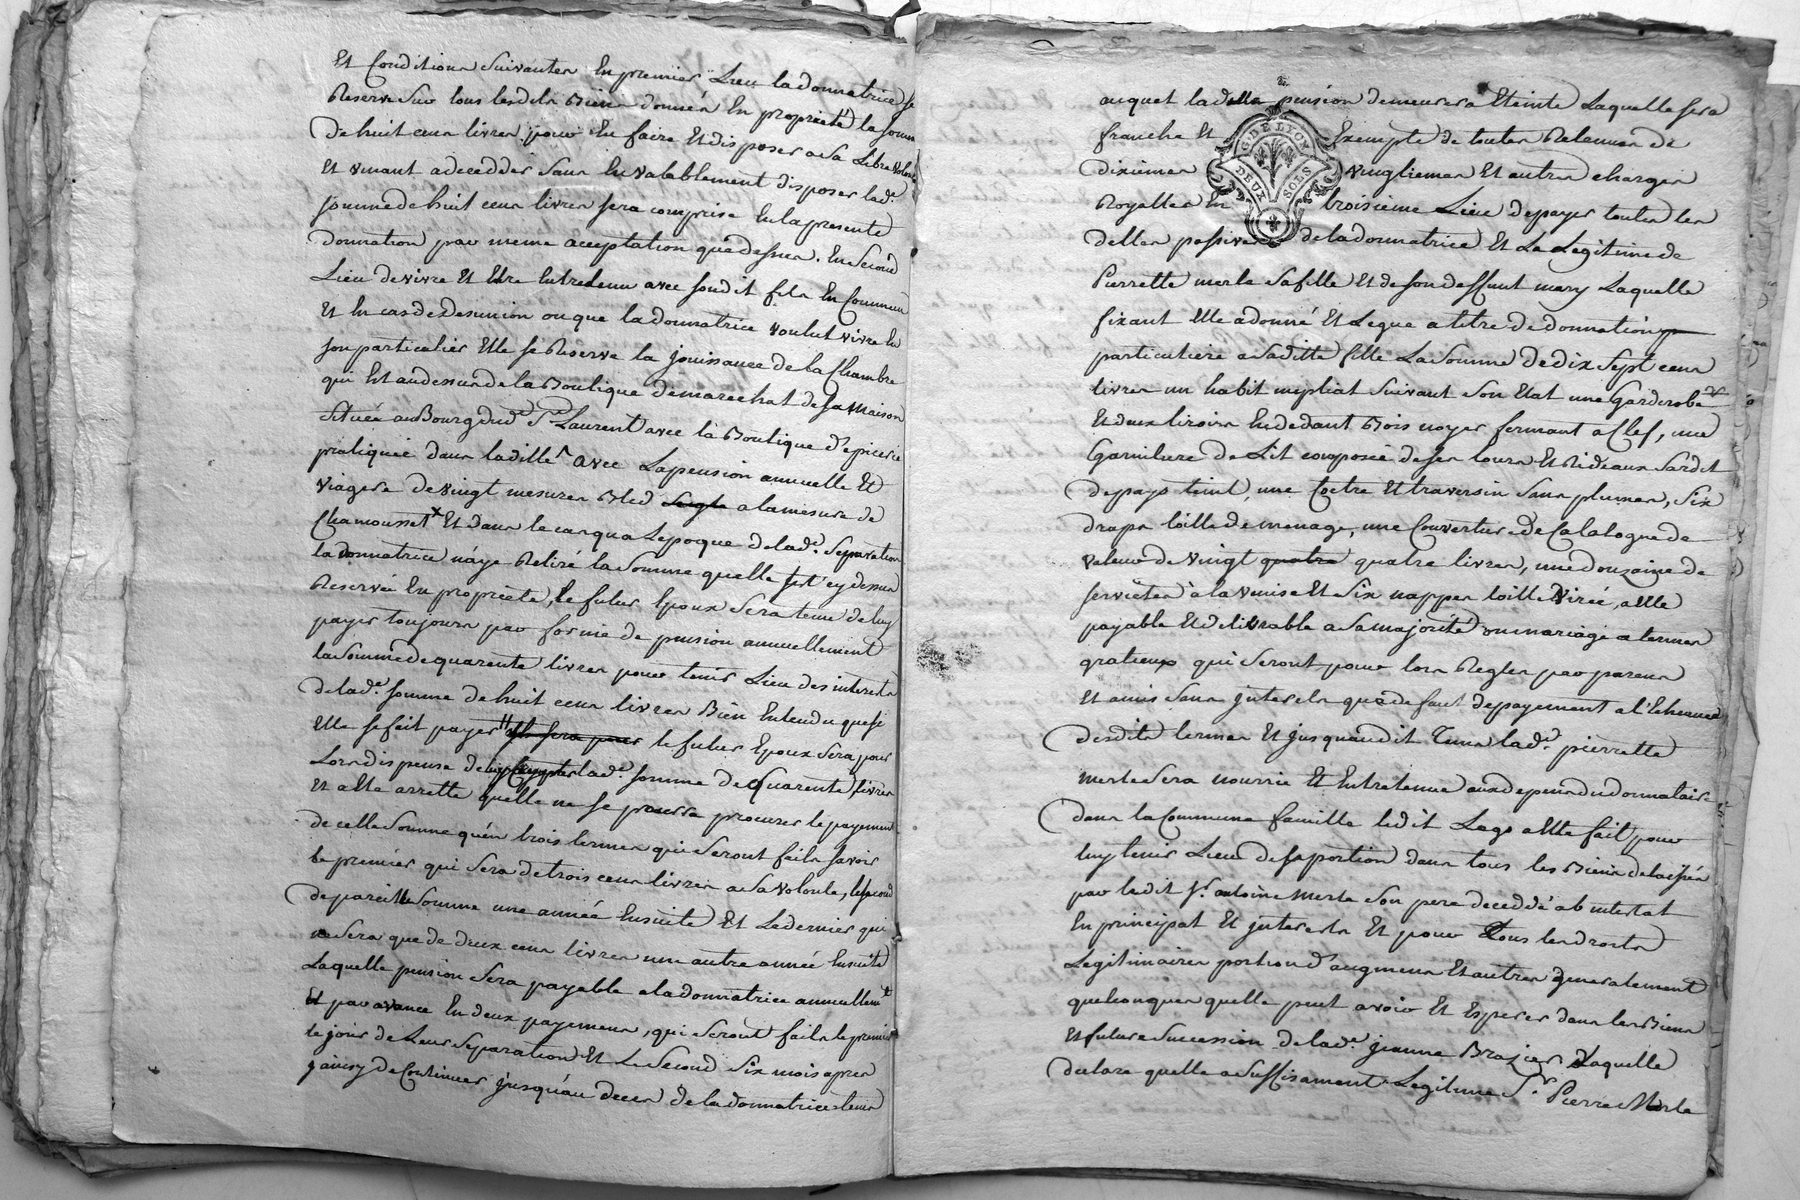 Et Conditions suivantes En premier Lieu la donnatrice se
Reserve sur tous lesdits Biens donnés En proprieté la somme
de huit cens livres pour En faire Et disposer a sa Libre volonté
Et venant a decedder sans En valablement disposer lad.e
somme de huit cens livres sera comprise En la presente
donnation par meme acceptation que dessus. En second
Lieu de vivre Et Etre Entretenu avec sondit fils En Commun
Et En cas de desunion ou que la donnatrice voulut vivre En
son particulier Elle se Reserve la jouissance de la Chambre
qui Est au dessus de la Boutique de marechal de sa maison
située au Bourg dud. St Laurent avec la Boutique d'epicerie
pratiquée dans laditte avec La pension annuelle Et
viagere de vingt mesures Bled seigle a la mesure de
Chamousset Et dans le cas qua Lepoque de lad.e separation
la donnatrice n'aye Retiré la somme quelle s'est cy dessus
Reservée En proprieté, le futur Epoux sera tenu de luy
payer toujours par forme de pension annuellement
la somme de quarente livres pour tenir Lieu des interets
de lad.e somme de huit cens livres Bien Entendu que si
Elle se fait payer le futur Epoux sera pour
Lors dispensé de lad.e somme de Quarente livres
Et a Elle arretté quelle ne se pourra procurer le payement
de celle somme qu'en trois termes qui seront faits savoir
le premier qui sera de trois cens livres a sa volonté, le second
de pareille somme une année Ensuite Et Le dernier qui
ne sera que de deux cens livres une autre année Ensuite
Laquelle pension sera payable a la donnatrice annuellemt
Et par avance En deux payemens, qui seront faits le premier
le jour de Leur separation Et Le second six mois apres
& ainsy de Continuer jusqu'au deces de la donnatrice tems
auquel laditte pension demeurera Eteinte Laquelle sera
franche Et Exempte de toutes Retenues de
dixiemes vingtiemes Et autres charges
Royalles En troisieme Lieu de payer toutes les
dettes passives de la donnatrice Et La Legitime de
Pierrette merle sa fille Et de son deffunt mary Laquelle
fixant Elle a donné Et Legue a titre de donnation
particuliere a saditte fille La somme de dix sept cens
livres un habit nuptial suivant son Etat une Garderobe
Et deux tiroirs En dedant Bois noyer fermant a Clef, une
Garniture de Lit composée de ses tours Et Rideaux sardit
de pays teint, une Coetre Et traversin sans plumes, six
draps toille de menage, une Couverture de Catalogne de
valeur de vingt quatre quatre livres, une douzaine de
serviettes à la venise Et six nappes toille Virée, a Elle
payable Et delivrable a sa majorité ou mariage a termes
gratieux qui seront pour lors Reglés par parens
Et amis sans interets qu'a defaut de payement a l'Echeance
desdits termes Et jusquaudit Tems lad.e pierrette
merle sera nourrie Et Entretenue aux depens du donnataire
dans la Commune famille ledit Legs a Elle fait pour
luy tenir Lieu de sa portion dans tous les Biens delaissés
par ledit Sr. antoine Merle son pere deceddé ab intestat
En principal Et interets Et pour Tous les droits
Legitimaires portion d'augmens Et autres generalement
quelconques quelle peut avoir Et Esperer dans les Biens
Et future succession de lad.e jeanne Brazier Laquelle
declare quelle a suffisament Legitimé Sr. Pierre Merle
G. DE LYON
DEUX SOLS